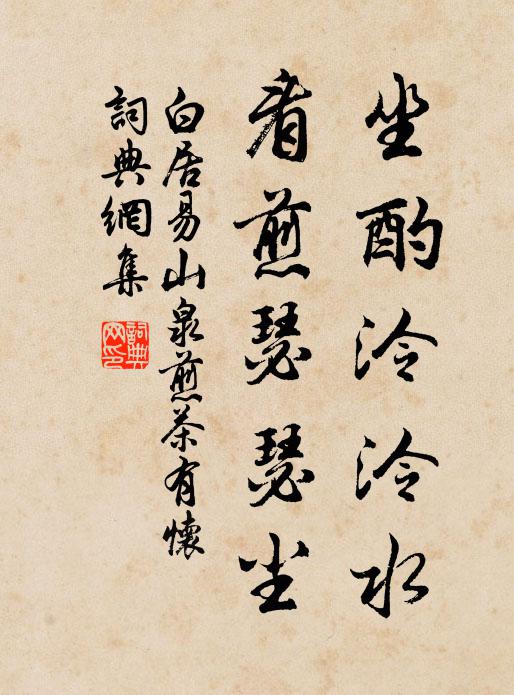 坐酌泠泠水
看煎瑟瑟尘
白居易山泉煎茶有懷
詞典網集
詞典
网印